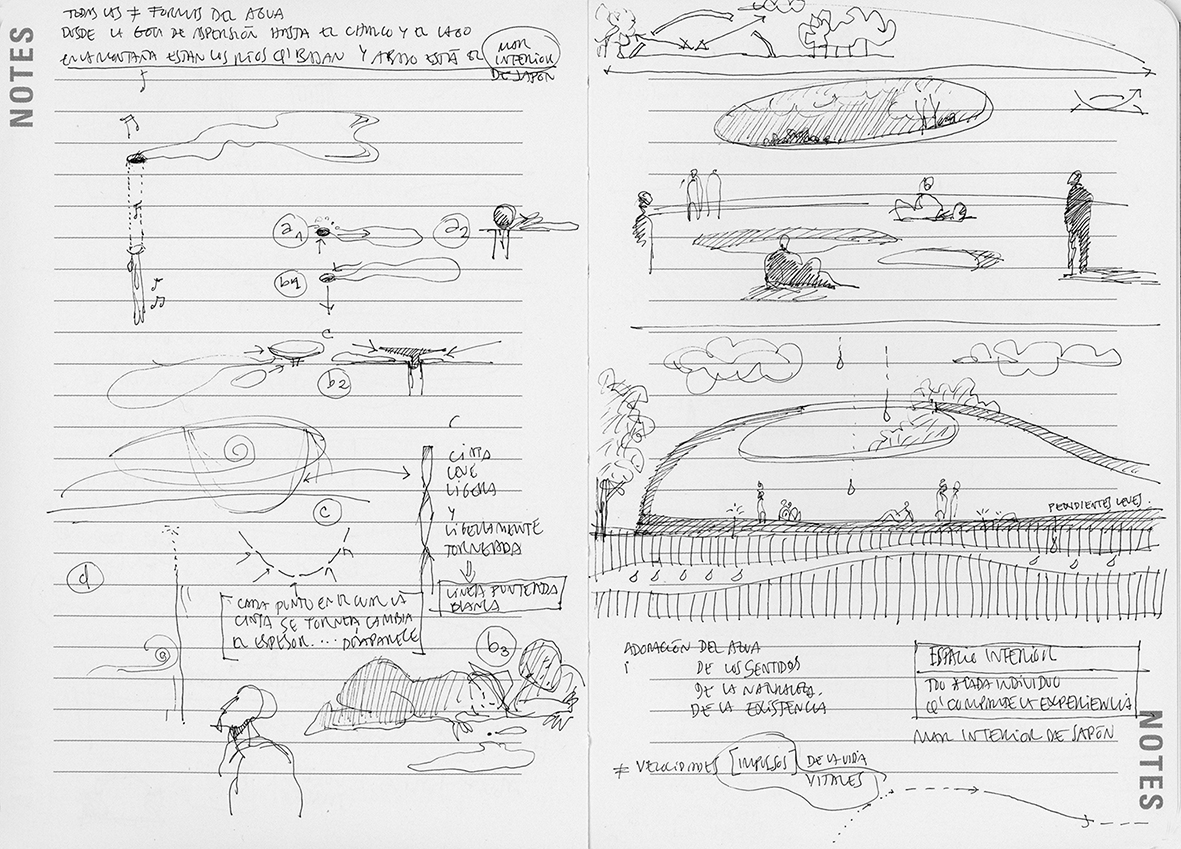 NOTES
TODAS LAS ≠ FORMAS DEL AGUA
DESDE LA GOTA DE ASPERSIÓN HASTA EL CHARCO Y EL LAGO
EN LA MONTAÑA ESTÁN LOS RÍOS Q' BAJAN Y ABAJO ESTÁ EL MAR
INTERIOR
DE JAPÓN
a1
a2
b1
C
b2
C
CINTA
LIGERA
Y
LIGERAMENTE
TORNEADA
LINEA PUNTEADA
BLANCA
C
d
CADA PUNTO EN EL CUAL LA
CINTA SE TORNEA CAMBIA
EL ESPESOR... DESAPARECE
a
b3
PENDIENTES LEVES.
ADORACIÓN DEL AGUA
DE LOS SENTIDOS
DE LA NATURALEZA.
DE LA EXISTENCIA
ESPACIO INTERIOR
CADA INDIVIDUO
Q' COMPARTE LA EXPERIENCIA
MAR INTERIOR DE JAPÓN
≠ VELOCIDADES [IMPULSOS] DE LA VIDA
VITALES
NOTES